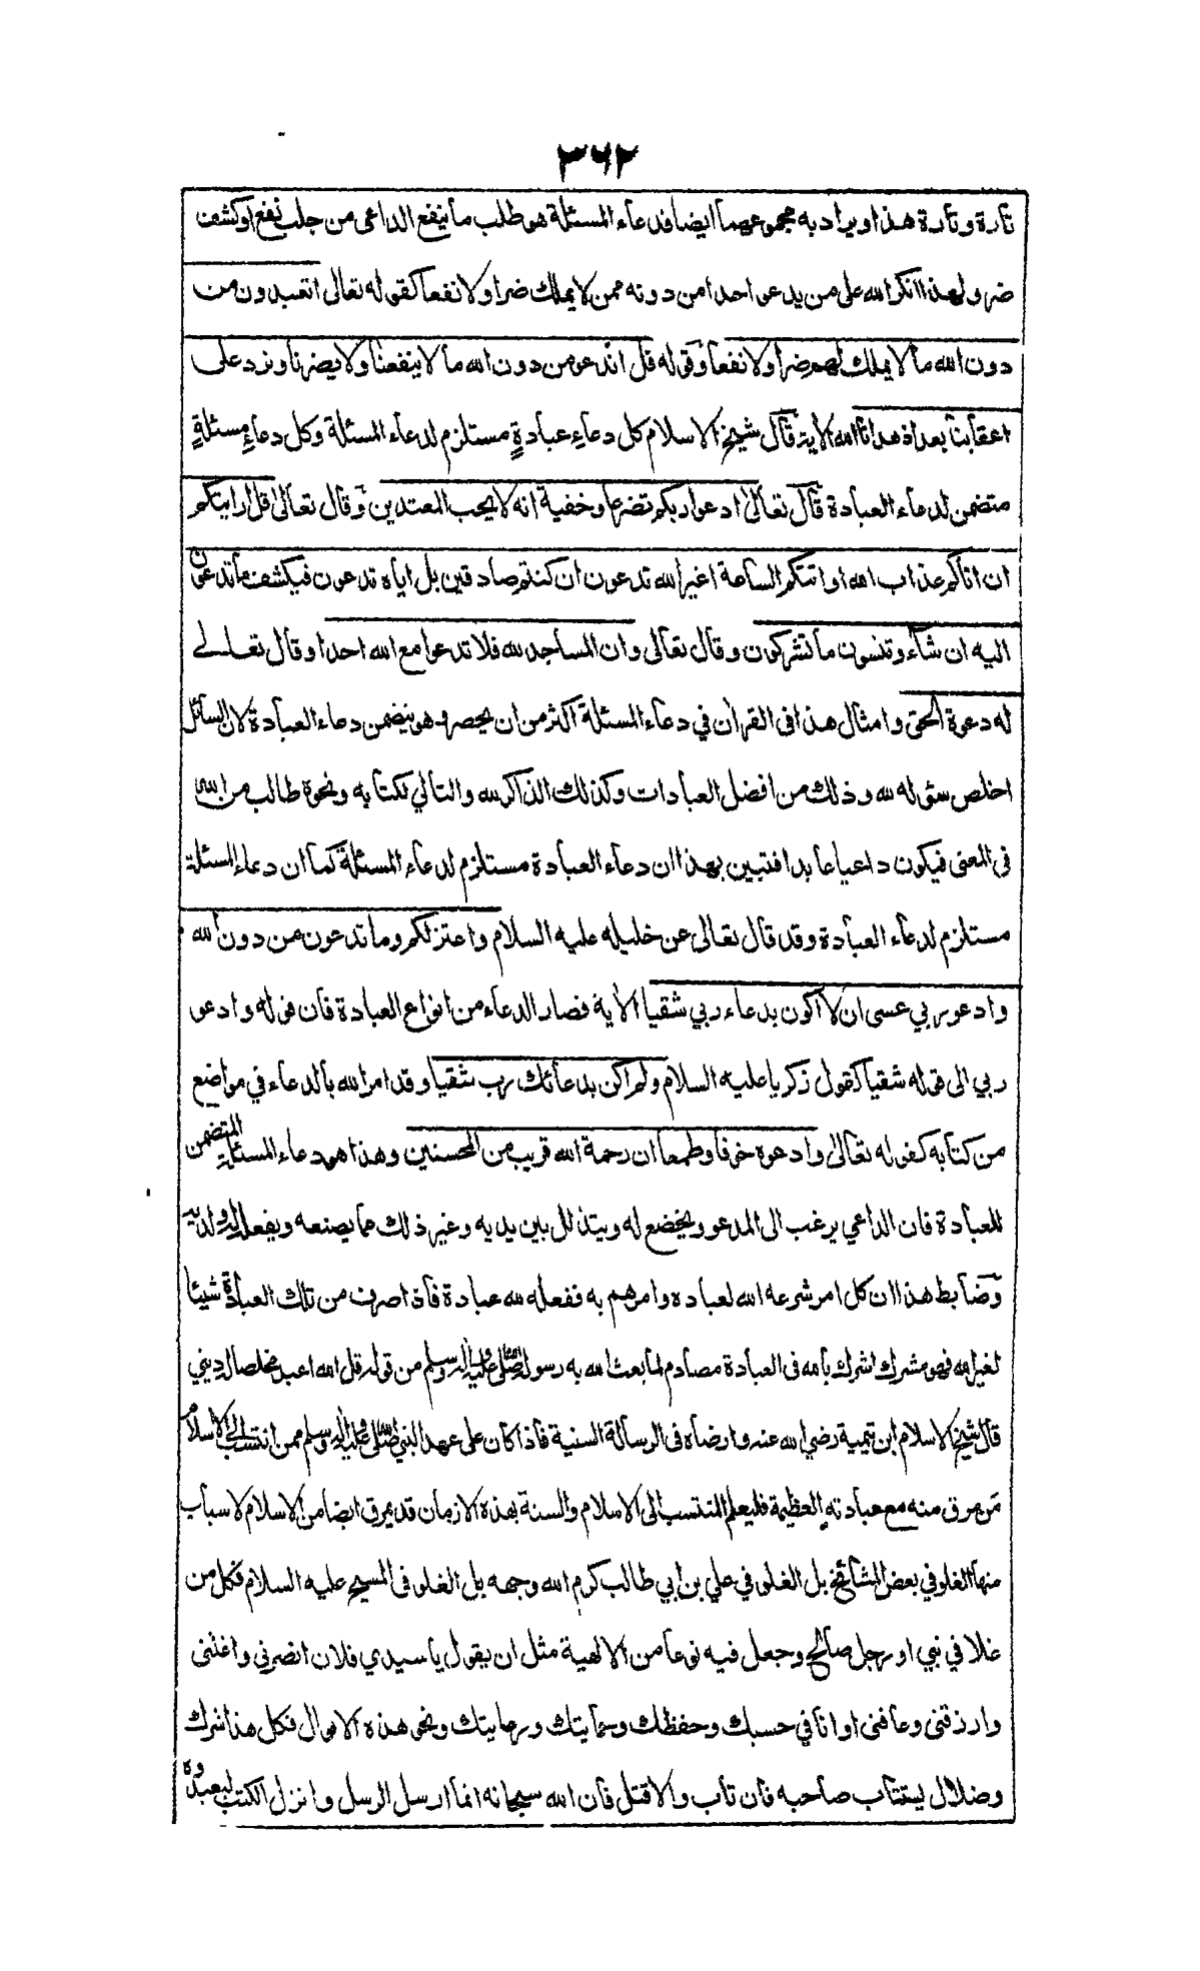 ٣٦٢
تارة وتارة هذا ويراد به مجموعهما ايضا فدعاء المسئلة هو طلب ما ينفع الداعي من جلب نفع او كشف
ضر ولهذا انكر الله على من يدعو احدا من دونه ممن لا يملك ضرا ولا نفعا كقوله تعالى اتعبدون من
دون الله ما لا يملك لهم ضرا ولا نفعا وقوله قل اندعو من دون الله ما لا ينفعنا ولا يضرنا ونرد على
اعقابنا بعد اذ هدانا الله الاية قال شيخ الاسلام كل دعاء عبادة مستلزم لدعاء المسئلة وكل دعاء مسئلة
متضمن لدعاء العبادة قال تعالى ادعوا ربكم تضرعا وخفية انه لا يحب المعتدين وقال تعالى قل ارايتكم
ان اتاكم عذاب الله او اتتكم الساعة اغير الله تدعون ان كنتم صادقين بل اياه تدعون فيكشف ما تدعون
اليه ان شاء وتنسون ما تشركون وقال تعالى وان المساجد لله فلا تدعوا مع الله احدا وقال تعالى
له دعوة الحق وامثال هذا في القران في دعاء المسئلة اكثر من ان يحصر وهو يتضمن دعاء العبادة لان السائل
اخلص سؤله لله وذلك من افضل العبادات وكذلك الذاكر لله والتالي لكتابه ونحوة طالب من الله
في المعنى فيكون داعيا عابدا فتبين بهذا ان دعاء العبادة مستلزم لدعاء المسئلة كما ان دعاء المسئلة
مستلزم لدعاء العبادة وقد قال تعالى عن خليله عليه السلام واعتزلكم وما تدعون من دون الله
وادعو ربي عسى ان لا اكون بدعاء ربي شقيا الاية فصار الدعاء من انواع العبادة فان قوله وادعو
ربي الى قوله شقيا كقول زكريا عليه السلام ولم اكن بدعائك رب شقيا وقد امر الله بالدعاء في مواضع
من كتابه كقوله تعالى وادعوه خوفا وطمعا ان رحمة الله قريب من المحسنين وهذا هو دعاء المسئلة المتضمن
للعبادة فان الداعي يرغب الى المدعو ويخضع له ويتذلل بين يديه وغير ذلك مما يصنعه ويفعله لديه
وضابط هذا ان كل امر شرعه الله لعباده وامرهم به ففعله لله عبادة فاذا صرف من تلك العبادة شيئا
لغير الله فهو مشرك اشرك بالله في العبادة مصادم لما بعث الله به رسوله صلى الله عليه واله وسلم من قوله قل الله اعبد مخلصا له ديني
قال شيخ الاسلام ابن تيمية رضي الله عنه وارضاه في الرسالة السنية فاذا كان على عهد النبي صلى الله عليه واله وسلم ممن انتسب الى الاسلام
من مرق منه مع عبادته العظيمة فليعلم المنتسب الى الاسلام والسنة بهذه الازمان قد يمرق ايضا من الاسلام لاسباب
منها الغلو في بعض المشائخ بل الغلو في علي بن ابي طالب كرم الله وجهه بل الغلو في المسيح عليه السلام فكل من
غلا في نبي او رجل صالح وجعل فيه نوعا من الالهية مثل ان يقول يا سيدي فلان انصرني واغثني
وارزقني وعافني او انا في حسبك وحفظك وحمايتك ورعايتك ونحو هذه الاقوال فكل هذا شرك
وضلال يستتاب صاحبه فان تاب والا قتل فان الله سبحانه انما ارسل الرسل وانزل الكتب ليعبدوه